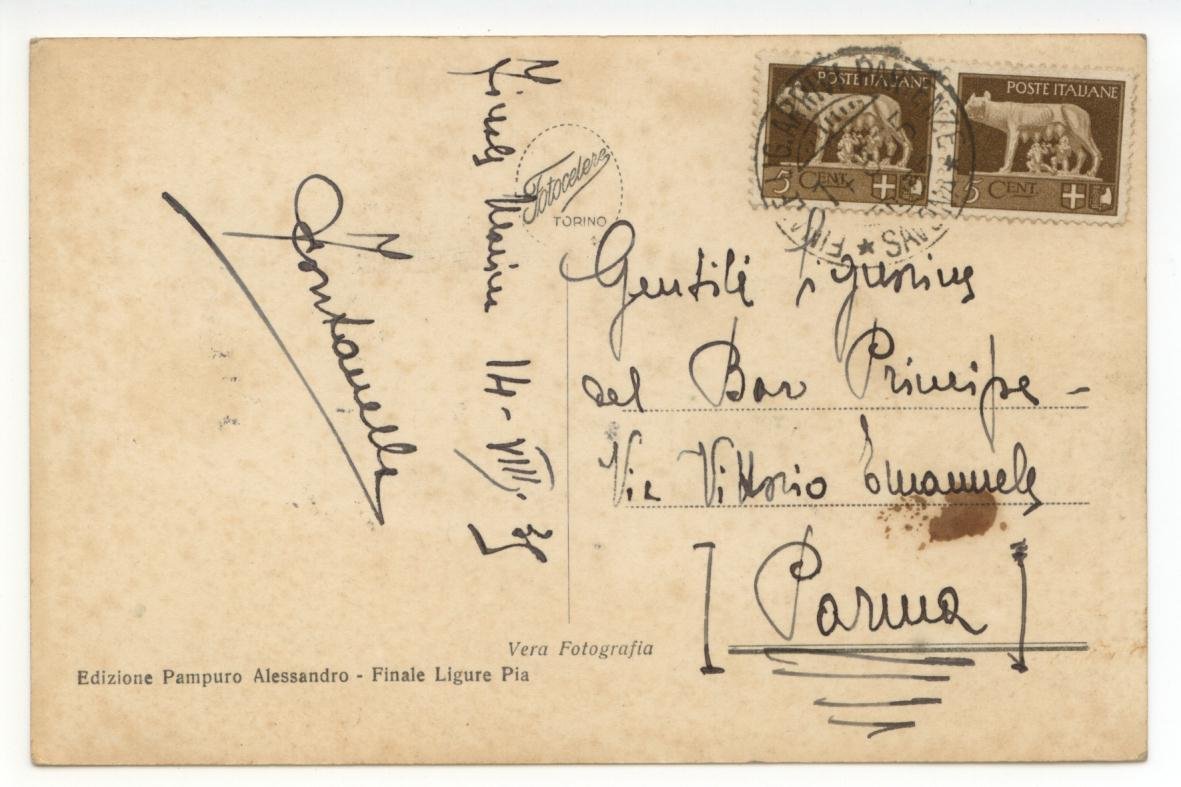 Finale Marina 14-VIII-35
Fontanella
Fotocelere
TORINO
POSTE ITALIANE
5 CENT.
POSTE ITALIANE
5 CENT.
Gentili Signorine
del Bar Principe -
Via Vittorio Emanuele
[Parma]
Vera Fotografia
Edizione Pampuro Alessandro - Finale Ligure Pia